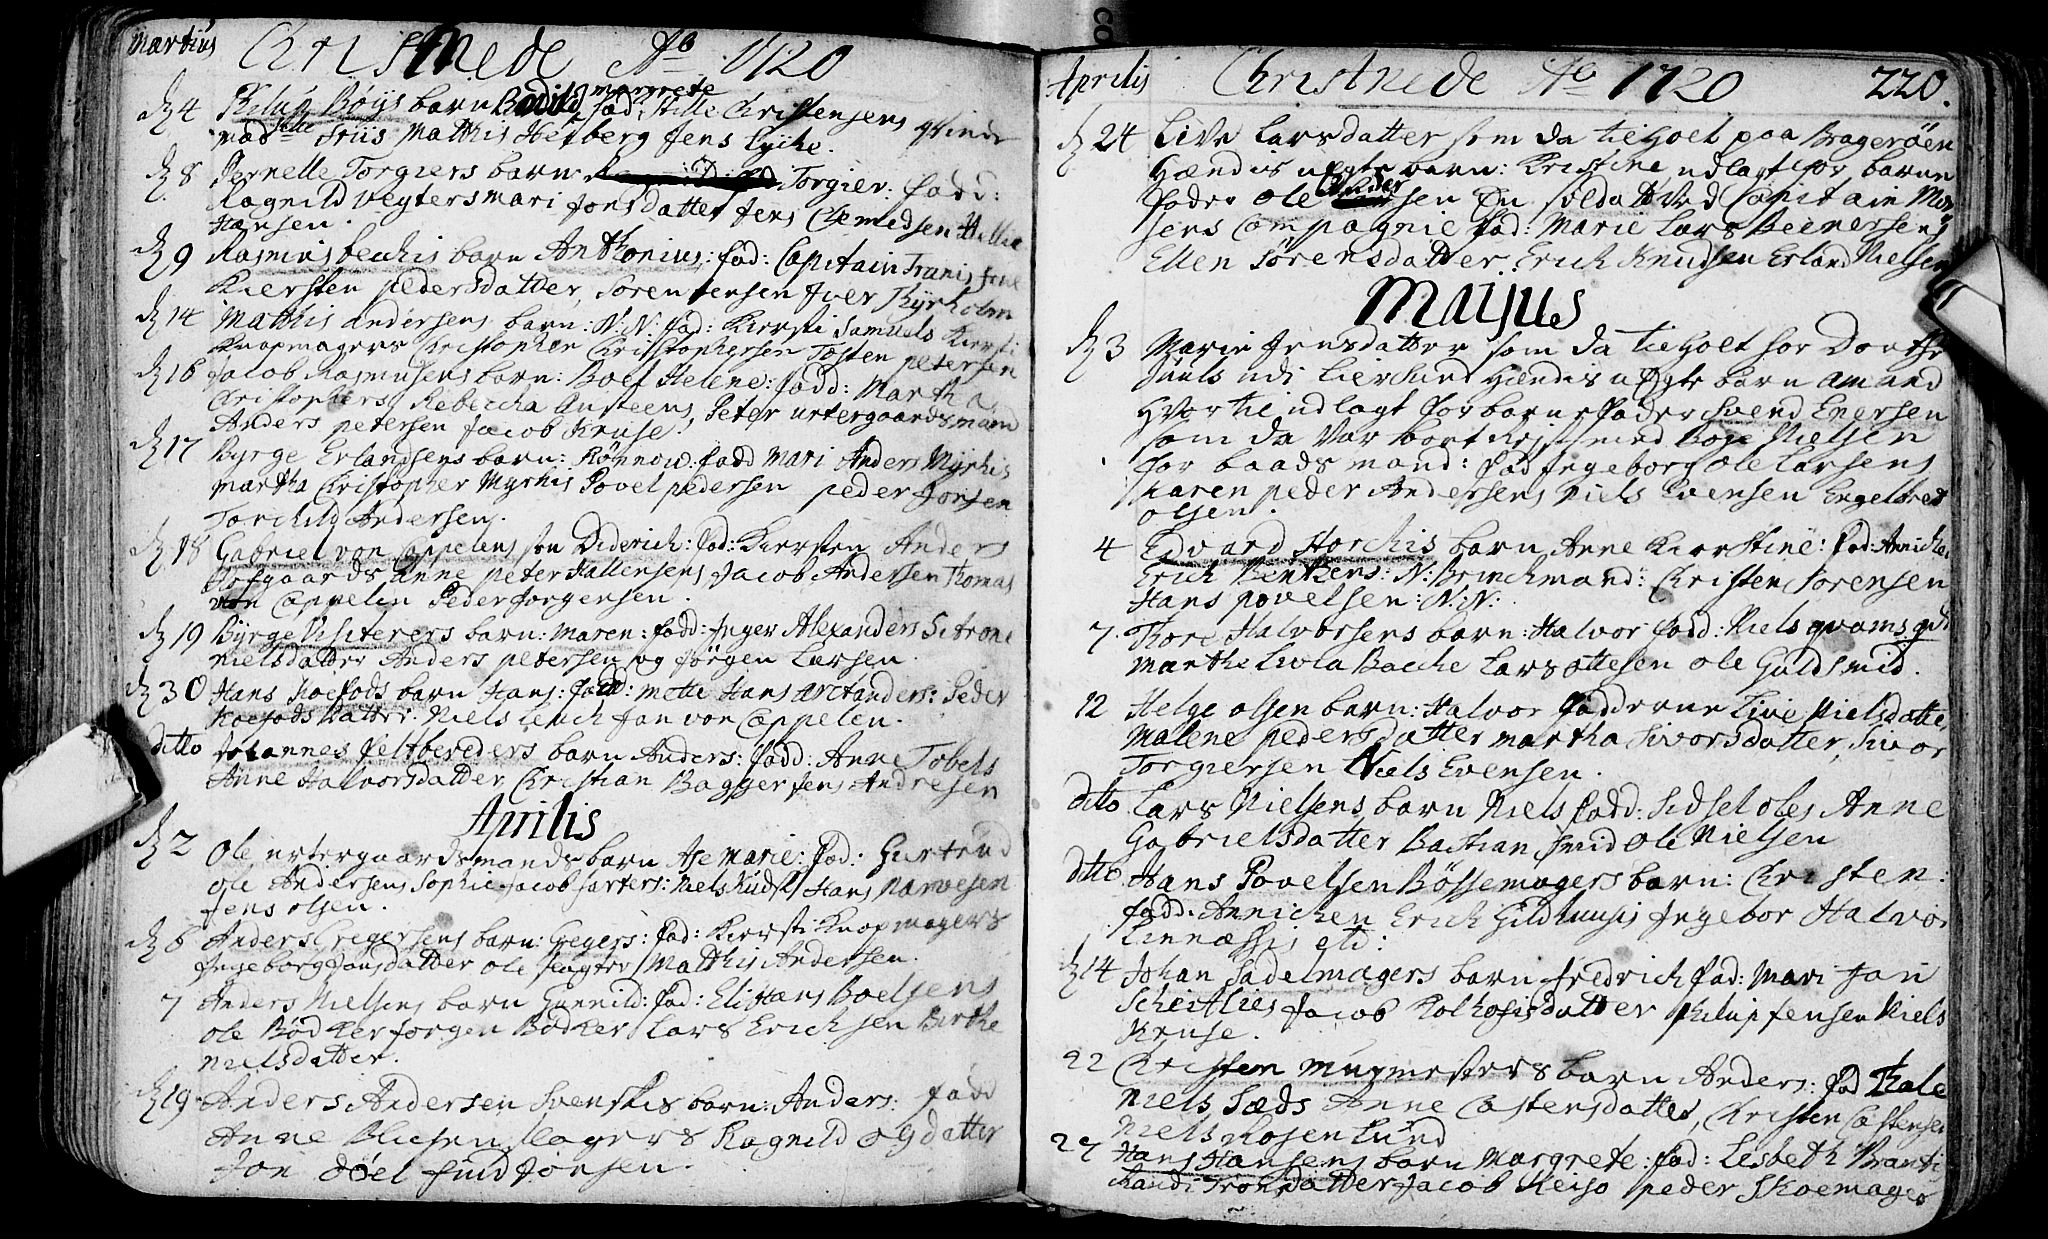 Martius Christnede Ao 1720
d 4 Philup Bøys barn Bodild fad: margrete Stille Christensens qvinde
mad: Friis Mathis Hesberg Jens Lyche.
d 8 Pernelle Torgiers barn Torgier: fadd:
Ragnild Vegters mari Jonsdatter Jens Clemedsen
Hansen.
d 9 Rasmus bechis barn Anthonius: fad: Capitain
Kiersten pedersdatter, Søren Jensen Iver Thyrholm
d 14 Mathis andersens barn: N: N: fad: Kiersti Samuels Kiersti
Knapmagers Christopher Christophersen Tosten petersen
d 16 Jacob Rasmusens barn: Boel Helene: fadd: Martha
Christophers, Rebeccha Austeens, Peter urtergaardsmand
Anders petersen Jacob Kruse.
d 17 Byrge Erlandsens barn: Rønnow: fadd mari Anders Myrhis
Martha Christopher Myrhis Povel pedersen peder Jonsen
Torchild Andersen.
d 18 Gabriel von Cappelens søn Diderich: fad: Kiersten Anders
Tofgaards Anne peter Hallensens Jacob Andersen Thomas
von Cappelen Peder Jørgensen.
d 19 Byrge Visiterers barn: Maren: fadd: Inger Alexanders Sitrone
Nielsdatter Anders petersen og Jørgen Larsen.
d 30 Hans Koefods barn Hans: fadd: mette Hans arctanders: Peder
Koefods datter: Niels Leuch Jan von Cappelen.
ditto Johannes feltbereders barn Anders: fadd: Anne Tobels
Anne Halvorsdatter Christian Bagger Jens Andresen
Aprilis
d 2 Ole urtergaardsmands barn Ase marie: fad: Giertrud
ole Andersens Sophie Jacob sarters: Niels Hans Narvesen
Jens olsen.
d 6 Anders Gregersens barn: Gregers: fad: Kiersti Knapmagers
Ingeborg Jansdatter ole slagter Matthis Andersen.
7 Anders Nielsens barn Gunnild: fad: Eli Hans Boelsens
ole Bødker Jorgen Bødker Lars Ericksen Birthe
Nielsdatter.
d 19 Anders Andersen Svenskis barn: Anders: fadd
Anne slagers Ragnild datter
Jon Smid Jonsen.
Aprilis Christnede Ao 1720 220.
d 24 Live Larsdatter som da tieHolt paa Bragerøen
Hændis uegte barn: Kristine udlagt for barne
fader ole Andersen En soldat Ved Capitain
sens Compagnie fad: Marie Lars Beemersens
Ellen Sørensdatter. Erick Knudsen Erland Nielsen
Maijus
d 3 Marie Jensdatter som da tieHolt hos Dorthe
Juuls udi Lier Hændis uEgte barn Amund
Hvor til udlagt for barnefader Svend Enersen
som da Var bortrejst med Boye Nielsen
for baadsmand: fad Ingeborg ole Larsens
Karen peder Andersens Niels Evensen Engelbret
olsen.
4 Edvard Storchis barn Anne Kierstine: fad: Anniche
Erick N: Brinchmand: Christen Sørensen
Hans povelsen: N: N:
7. Thore Halvorsens barn: Halvor fadd: Niels qvams
Marthe Livia Bache Lars ottesen ole Guldsmid.
12 Helge olsen barn: Halvor fadderne Live Nielsdatter
Malene pedersdatter Martha Sivorsdatter, Sivor
Torgiersen Niels Evensen.
ditto Lars Nielsens barn Niels fadd: Sidsel oles Anne
Gabrielsdatter Bastian smid ole Nielsen
ditto Hans Povelsen Bøssemagers barn: Christen:
fadd. Annichen Erick Gildhuusis Ingebor Halvor
Linnæssis etc:
d 14 Johan Sadelmagers barn fredrich fad: Mari Jan
Scheitlies Jacob Kolhofisdatter Philip Jensen Niels
Kruse.
22 Christen Murmesters barn Anders: fad Thale
Niels Sæds Anne Castensdatter, Christen Castensen
Niels Rosenlund
27 Hans Hansens barn Margrete: fad: Lisbeth
Randi Tronsdatter Jacob Keiso peder Skoemager